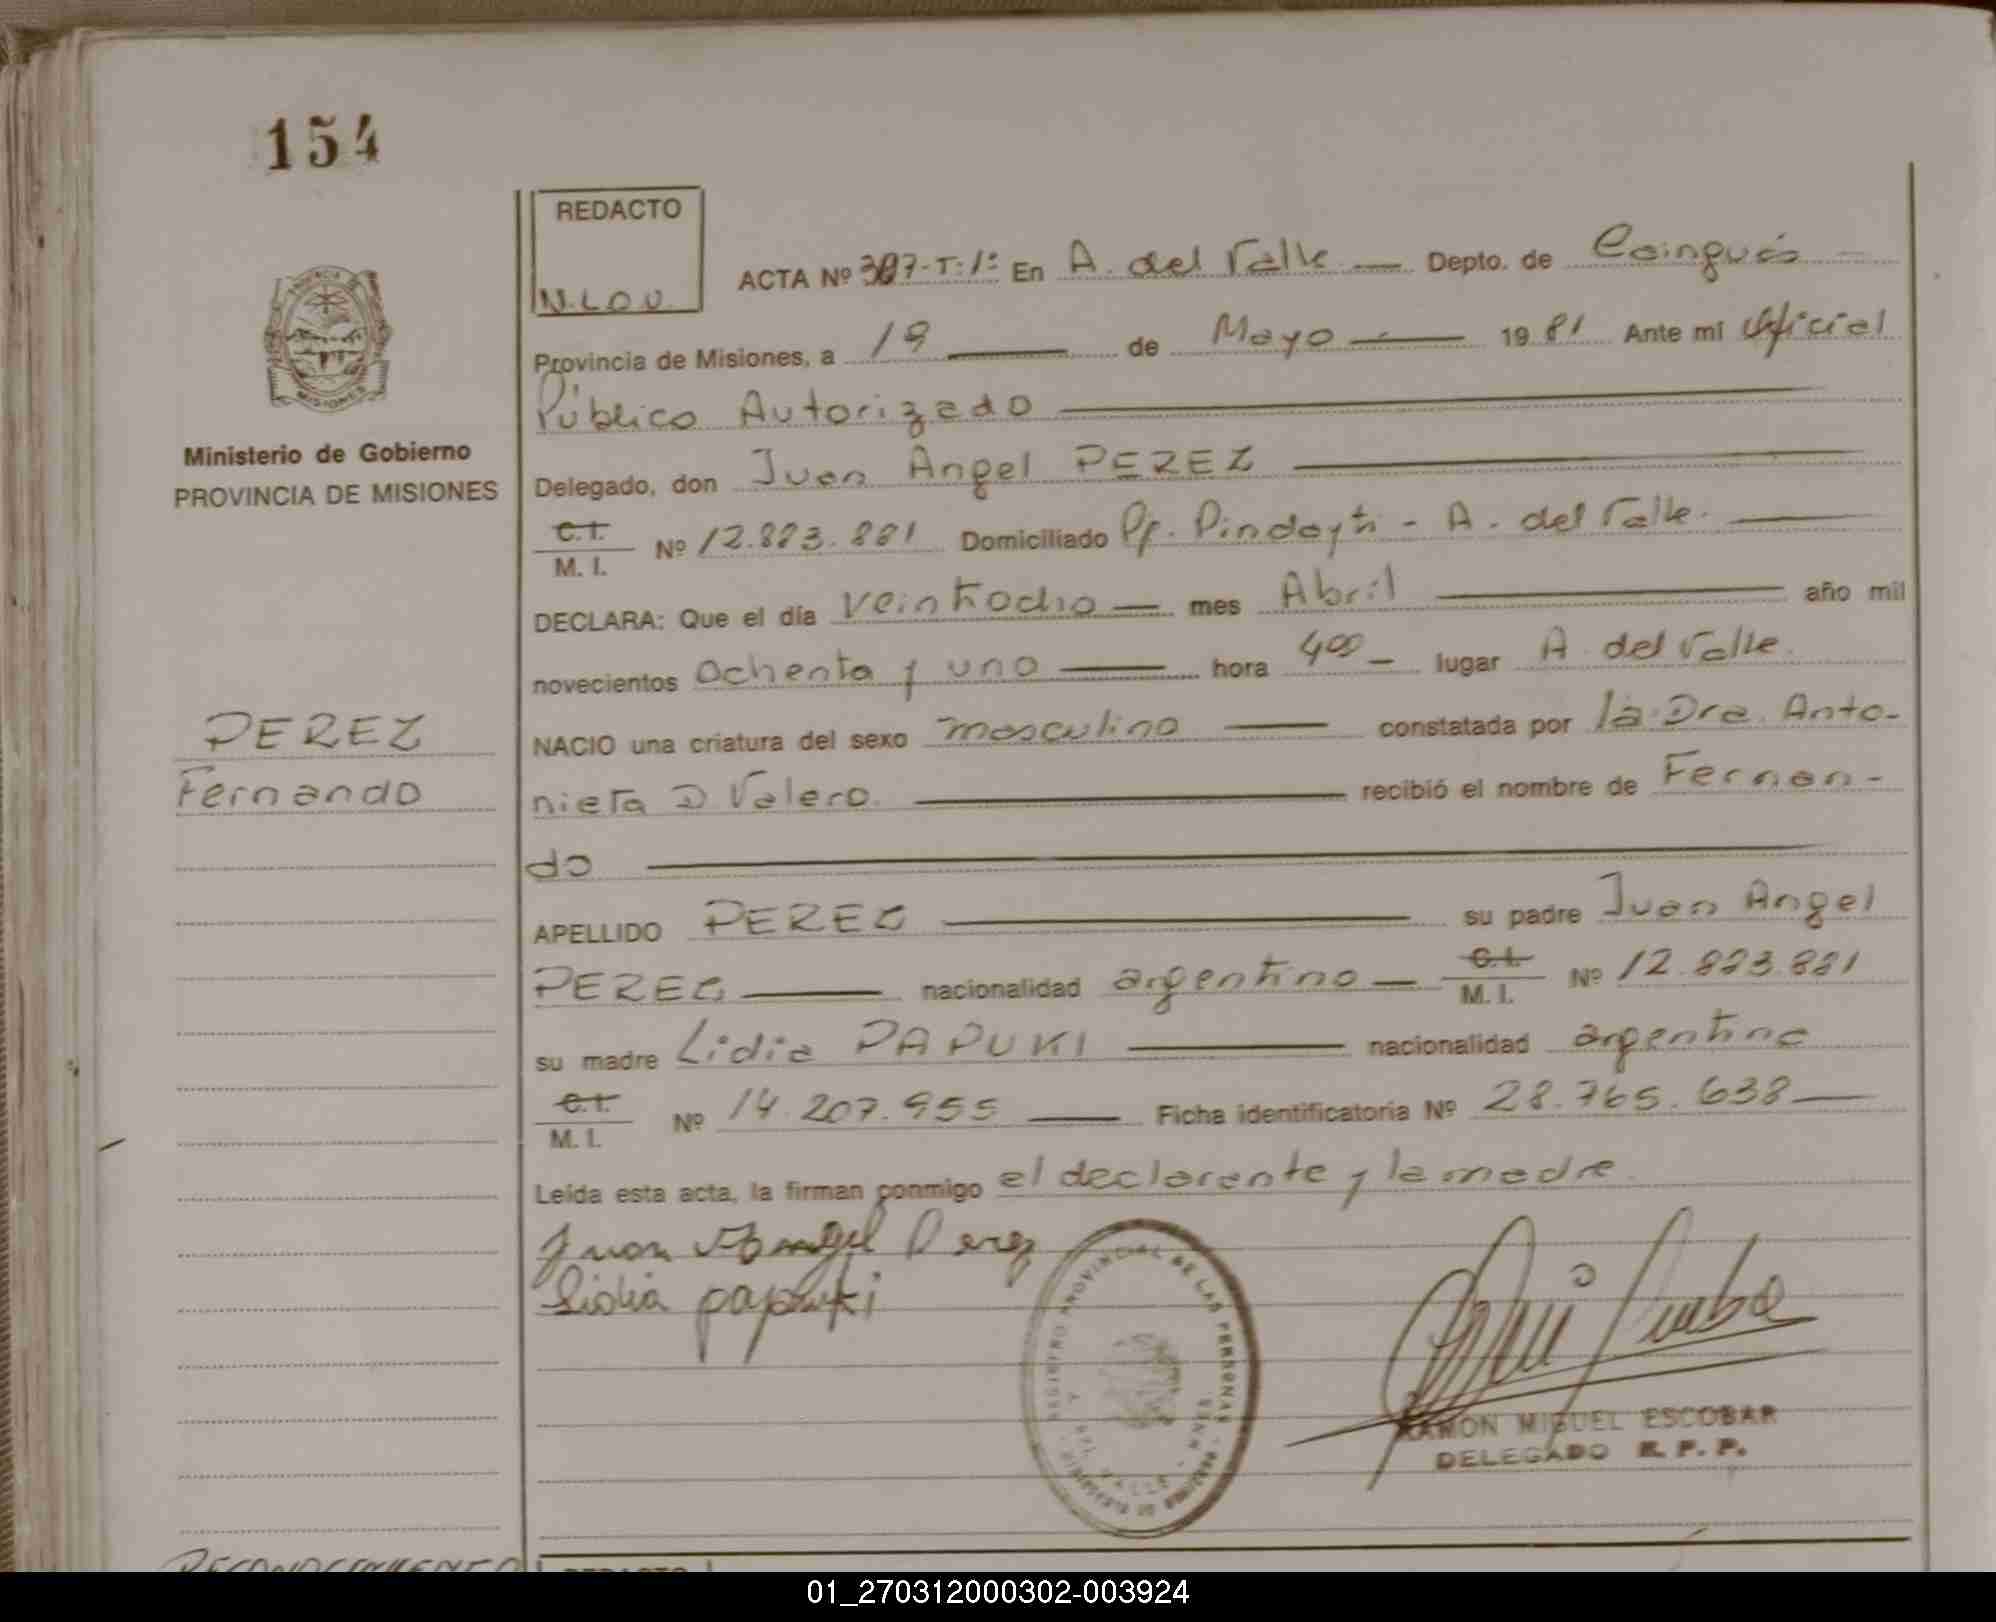 154
REDACTO
N.L.O.V.
ACTA Nº 387-T:1º En A. del Valle — Depto. de Cainguás —
Provincia de Misiones, a 19 — de Mayo — 1981 Ante mí Oficial
Público Autorizado
Ministerio de Gobierno
PROVINCIA DE MISIONES
Delegado, don Juan Angel PEREZ
C.I.
M. I. Nº 12.883.881 Domiciliado Pp. Pindayti - A. del Valle.
DECLARA: Que el día veintiocho — mes Abril — año mil
novecientos ochenta y uno — hora 4 00 — lugar A. del Valle.
PEREZ
Fernando
NACIO una criatura del sexo masculino — constatada por la Dra. Anto-
nieta D Valero. — recibió el nombre de Fernan-
do
APELLIDO PEREZ — su padre Juan Angel
PEREZ — nacionalidad argentino — C.I. M. I. Nº 12.883.881
su madre Lidia PAPUKI — nacionalidad argentina
C.I.
M. I. Nº 14.207.955 — Ficha identificatoria Nº 28.765.638 —
Leída esta acta, la firman conmigo el declarante y la madre.
Juan Angel Perez
Lidia papuki
REGISTRO PROVINCIAL DE LAS PERSONAS
RAMON MIGUEL ESCOBAR
DELEGADO R. P. P.
RECONOCIMIENTO
REDACTO
01_270312000302-003924